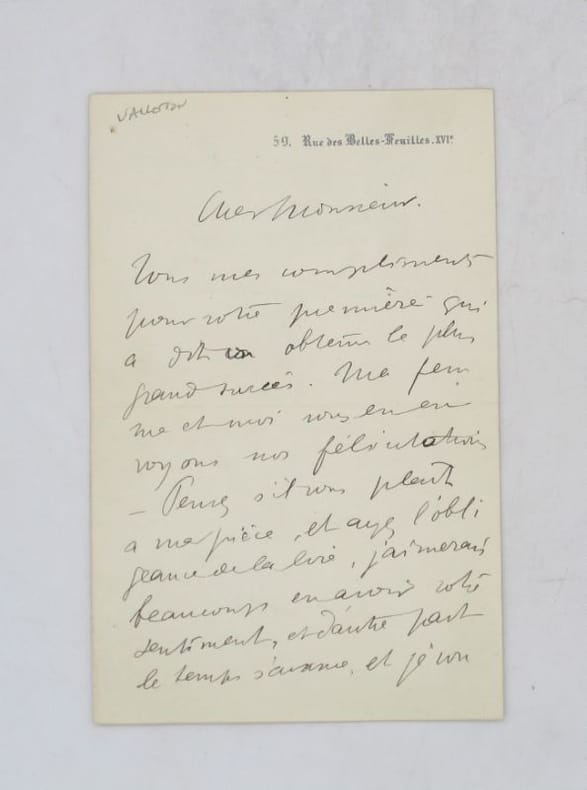 VALLOTON
59, Rue des Belles-Feuilles. XVIe
Cher Monsieur.
Tous mes compliments
pour votre première qui
a dût obtenir le plus
grand succès. Ma fem
me et moi vous en en
voyons nos félicitations
— Pensez s'il vous plait
a ma pièce, et ayez l'obli
geance de la lire, j'aimerais
beaucoup en avoir votre
sentiment, et d'autre part
le temps s'avance, et je vou